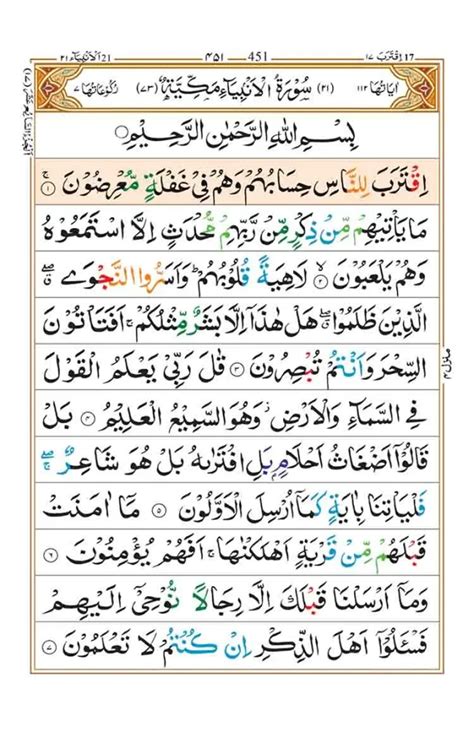 اقترب 17 ١٧ 451 ٤٥١ الانبیآء 21 ٢١
اٰیاتھا ١١٢ (٢١) سُوْرَةُ الْاَنْۢبِیَآءِ مَكِّیَّةٌ (٧٣) رکوعاتھا ٧
بِسْمِ اللّٰهِ الرَّحْمٰنِ الرَّحِیْمِ
اِقْتَرَبَ لِلنَّاسِ حِسَابُهُمْ وَهُمْ فِیْ غَفْلَةٍ مُّعْرِضُوْنَ ۚ ۝١
مَا یَاْتِیْهِمْ مِّنْ ذِكْرٍ مِّنْ رَّبِّهِمْ مُّحْدَثٍ اِلَّا اسْتَمَعُوْهُ
وَهُمْ یَلْعَبُوْنَ ۙ ۝٢ لَاهِیَةً قُلُوْبُهُمْ ؕ وَاَسَرُّوا النَّجْوَی ۖۗ
الَّذِیْنَ ظَلَمُوْا ۖۗ هَلْ هٰذَاۤ اِلَّا بَشَرٌ مِّثْلُكُمْ ۚ اَفَتَاْتُوْنَ
السِّحْرَ وَاَنْتُمْ تُبْصِرُوْنَ ۝٣ قٰلَ رَبِّیْ یَعْلَمُ الْقَوْلَ
فِی السَّمَآءِ وَالْاَرْضِ ؗ وَهُوَ السَّمِیْعُ الْعَلِیْمُ ۝٤ بَلْ
قَالُوْۤا اَضْغَاثُ اَحْلَامٍۭ بَلِ افْتَرٰىهُ بَلْ هُوَ شَاعِرٌ ۖۚ
فَلْیَاْتِنَا بِاٰیَةٍ كَمَاۤ اُرْسِلَ الْاَوَّلُوْنَ ۝٥ مَاۤ اٰمَنَتْ
قَبْلَهُمْ مِّنْ قَرْیَةٍ اَهْلَكْنٰهَا ۚ اَفَهُمْ یُؤْمِنُوْنَ ۝٦
وَمَاۤ اَرْسَلْنَا قَبْلَكَ اِلَّا رِجَالًا نُّوْحِیْۤ اِلَیْهِمْ
فَسْـَٔلُوْۤا اَهْلَ الذِّكْرِ اِنْ كُنْتُمْ لَا تَعْلَمُوْنَ ۝٧